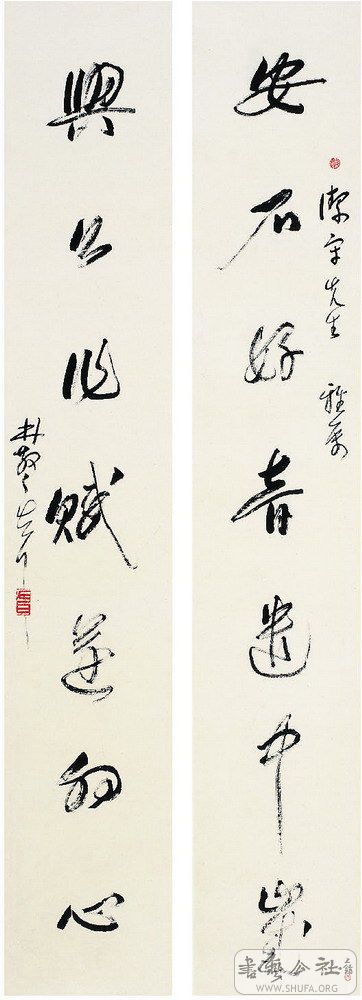 先生 雅屬
安石好音遣中歲
興公作賦遂初心
林散之
書藝公社
WWW.SHUFA.ORG